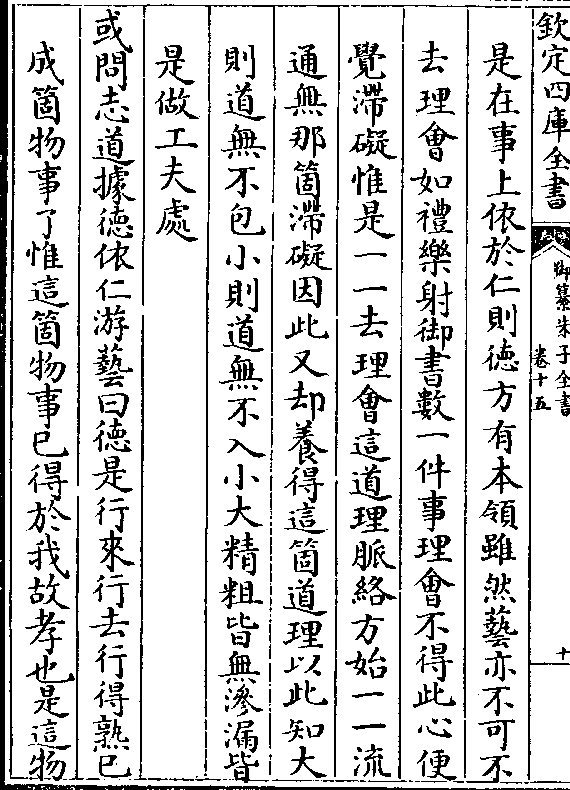 欽定四庫全書
御纂朱子全書
卷十五
十
是在事上依於仁則徳方有本領雖然藝亦不可不
去理會如禮樂射御書數一件事理會不得此心便
覺滯礙惟是一一去理會這道理脈絡方始一一流
通無那箇滯礙因此又却養得這箇道理以此知大
則道無不包小則道無不入小大精粗皆無滲漏皆
是做工夫處
或問志道據徳依仁游藝曰徳是行來行去行得熟已
成箇物事了惟這箇物事已得於我故孝也是這物